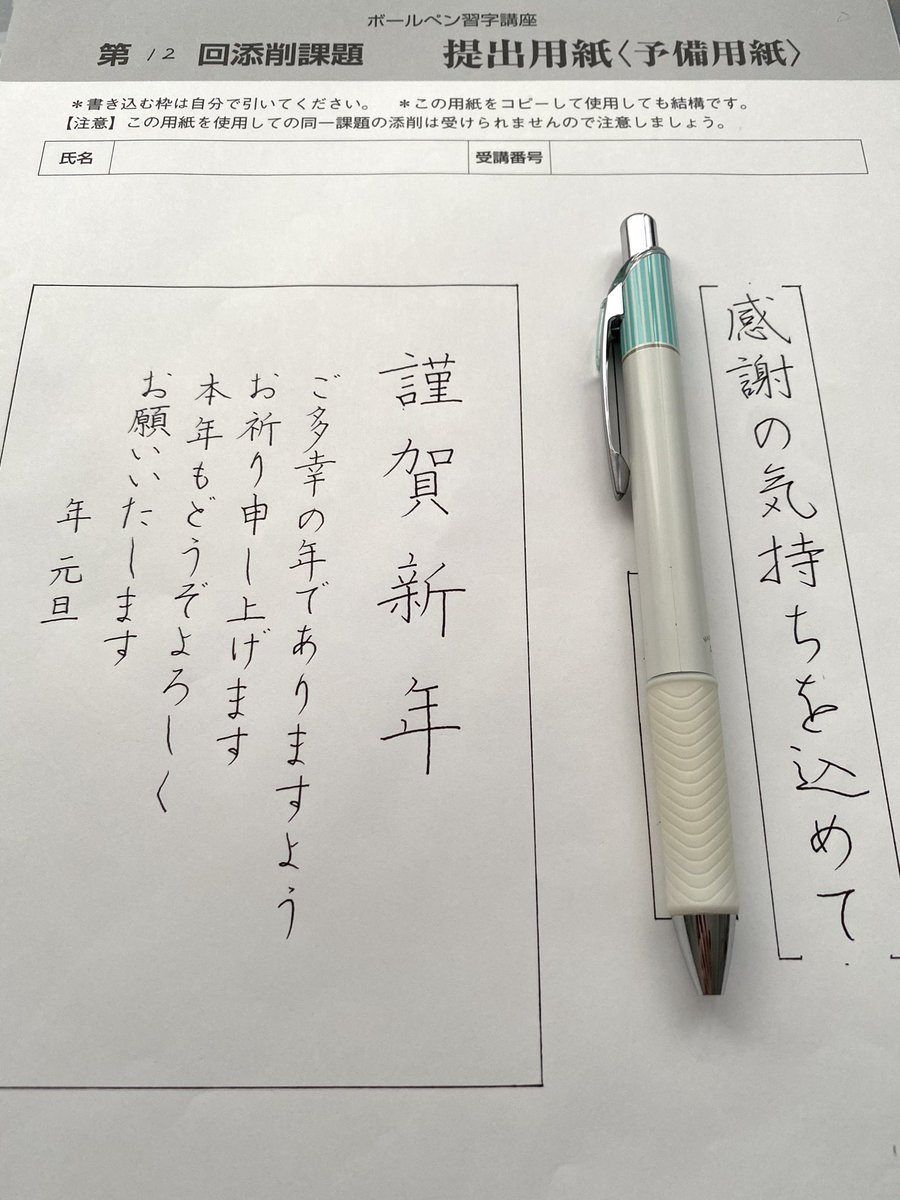 ボールペン習字講座
第 12 回添削課題 提出用紙〈予備用紙〉
＊書き込む枠は自分で引いてください。 ＊この用紙をコピーして使用しても結構です。
【注意】この用紙を使用しての同一課題の添削は受けられませんので注意しましょう。
氏名 受講番号
感謝の気持ちを込めて
謹賀新年
ご多幸の年でありますよう
お祈り申し上げます
本年もどうぞよろしく
お願いいたします
年 元旦